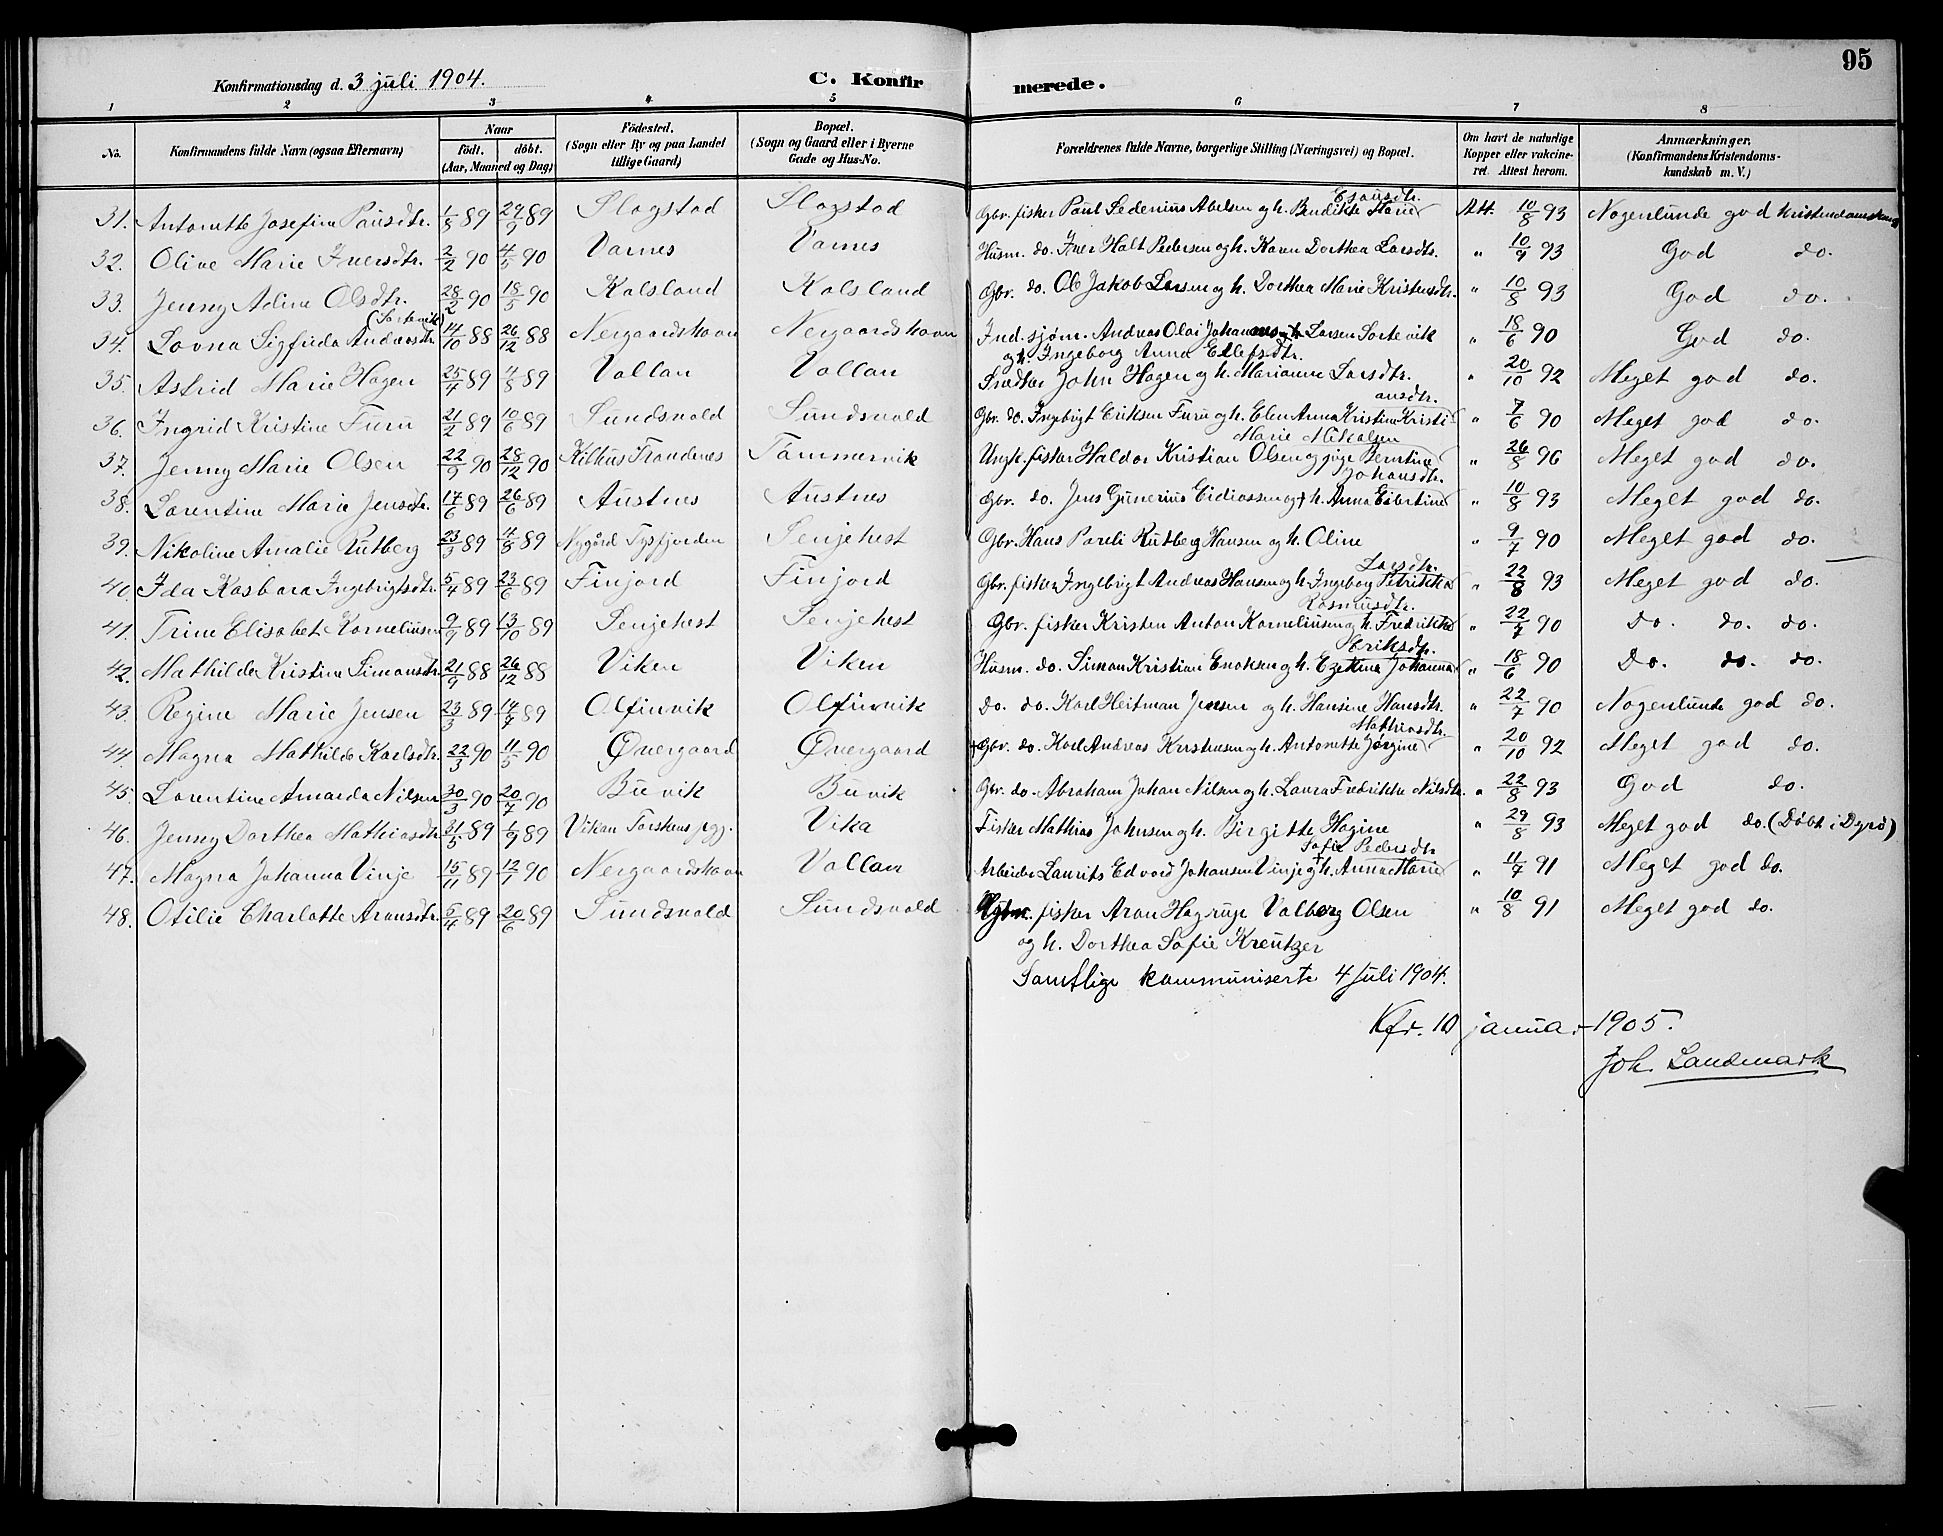 95
Konfirmationsdag d. 3 juli 1904. C. Konfirmerede.
1 2 3 4 5 6 7 8
No. Konfirmandens fulde Navn (ogsaa Efternavn) Naar født. døbt. (Aar, Maaned og Dag) Fødested. (Sogn eller By og paa Landet tillige Gaard) Bopæl. (Sogn og Gaard eller i Byerne Gade og Hus-No. Forældrenes fulde Navne, borgerlige Stilling (Næringsvei) og Bopæl. Om havt de naturlige Kopper eller vakcineret. Attest herom. Anmærkninger. (Konfirmandens Kristendomskundskab m. V.)
31. Antonette Josefine Paulsdtr. 1/8 89 29/9 89 Slagstad Slagstad Gbr. fisker Paul Sedenius Abelsen og h. Bendikte Marie Esausdtr. Att. 10/8 93 Nogenlunde god Kristendomskund
32. Oline Marie Iversdtr. 2/2 90 4/5 90 Varnes Varnes Husm. do. Iver Halt Pedersen og h. Karen Dorthea Larsdtr. " 10/9 93 God do.
33. Jenny Adine Olsdtr. 28/2 90 18/5 90 Kalsland Kalsland Gbr. do. Ol Jakob Larsen og h. Dorthea Marie Kristensdtr. " 10/8 93 God do.
34. Lovna Sigfrida Andersdtr. (Sortevik) 14/10 88 26/12 88 Nergaardshavn Nergaardshavn Ind. sjøm. Andreas Olai Johan Larsen Sortevik " 18/6 90 God do.
og h. Ingeborg Anna Ellefsdtr.
35. Astrid Marie Hagen 25/4 89 4/8 89 Vallan Vallan Snedker John Hagen og h. Marianne Larsdtr. " 20/10 92 Meget god do.
36. Ingrid Kristine Furu 21/2 89 10/6 89 Sundsvold Sundsvold Gbr. do. Ingebrigt Eriksen Furu og h. Elen Anna Kristine Kristiansdtr. " 7/6 90 Meget god do.
37. Jenny Marie Olsen 22/9 90 28/12 90 Kilhus Trondenes Tømmervik Ungk. fisker Haldor Kristian Olsen og pige Berntine Marie Mikalsen " 26/8 96 Meget god do.
38. Lorentine Marie Jensdtr. 17/6 89 26/6 89 Austnes Austnes Gbr. do. Jens Gunerius Eidiassen og h. Anna Esbertine Johansdtr. " 10/8 93 Meget god do.
39. Nikoline Amalie Rutberg 23/3 89 4/8 89 Nygård Tysfjorden Senjehest Gbr. Hans Pareli Rutberg Hansen og h. Oline " 9/7 90 Meget god do.
40. Ida Kasbara Ingebrigtsdtr. 5/4 89 23/6 89 Finjord Finjord Gbr. fisker Ingebrigt Andreas Hansen og h. Ingebog Petrikka Larsdtr. " 22/8 93 Meget god do.
41. Trine Elisabet Korneliusen 9/9 89 13/10 89 Senjehest Senjehest Gbr. fisker Kristen Anton Korneliusen og h. Fredrikke Rasmusdtr. " 22/7 90 Do. do. do.
42. Mathilde Kristine Simonsdtr. 21/9 88 26/12 88 Viken Viken Husm. do. Simon Kristian Enoksen og h. Ezekina Johanna Eriksdtr. " 18/6 90 Do. do. do.
43. Regine Marie Jensen 23/3 89 14/7 89 Olfinvik Olfinvik Do. do. Karl Heitman Jensen og h. Hansine Hansdtr. " 22/7 90 Nogenlunde god do.
44. Magna Mathilde Karlsdtr. 22/3 90 11/5 90 Øvergaard Øvergaard Gbr. do. Karl Andreas Kristensen og h. Antonette Jørgine Mathiasdtr. " 20/10 92 Meget god do.
45. Lorentine Amanda Nilsen 30/3 90 20/7 90 Buvik Buvik Gbr. do. Abraham Johan Nilsen og h. Laura Fredrikke Nilsdtr. " 22/8 93 God do.
46. Jenny Dorthea Mathiasdtr. 31/5 89 1/9 89 Vikan Torskens pgj. Vika Fisker Mathias Johnsen og h. Birgitte Hagine " 29/8 93 Meget god do. (Døbt i Dyrø)
47. Magna Johanna Vinje 15/11 89 12/1 90 Nergaardshavn Vallan Arbeider Laurits Edvard Johansen Vinje og h. Anna Marie Sofie Pedersdtr. " 11/7 91 Meget god do.
48. Otilie Charlotte Aronsdtr. 5/4 89 20/6 89 Sundsvold Sundsvold fisker Aron Hagrup Valberg Olsen " 10/8 91 Meget god do.
og h. Dorthea Sofie Kreutzer
Samtlige kommuniserte 4 juli 1904.
Kfr. 10 januar 1905.
Joh. Landmark